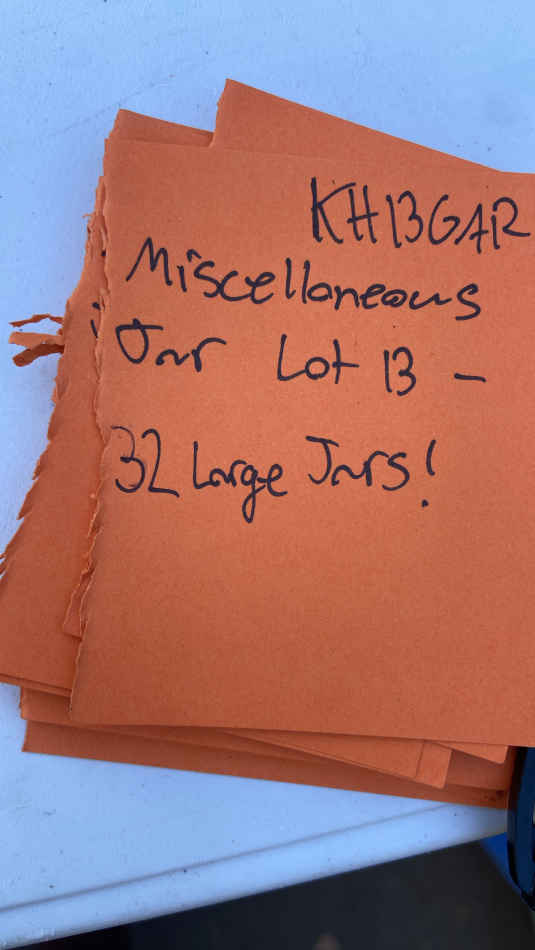 KH13GAR
Miscellaneous
Jar Lot 13 -
32 Large Jars!